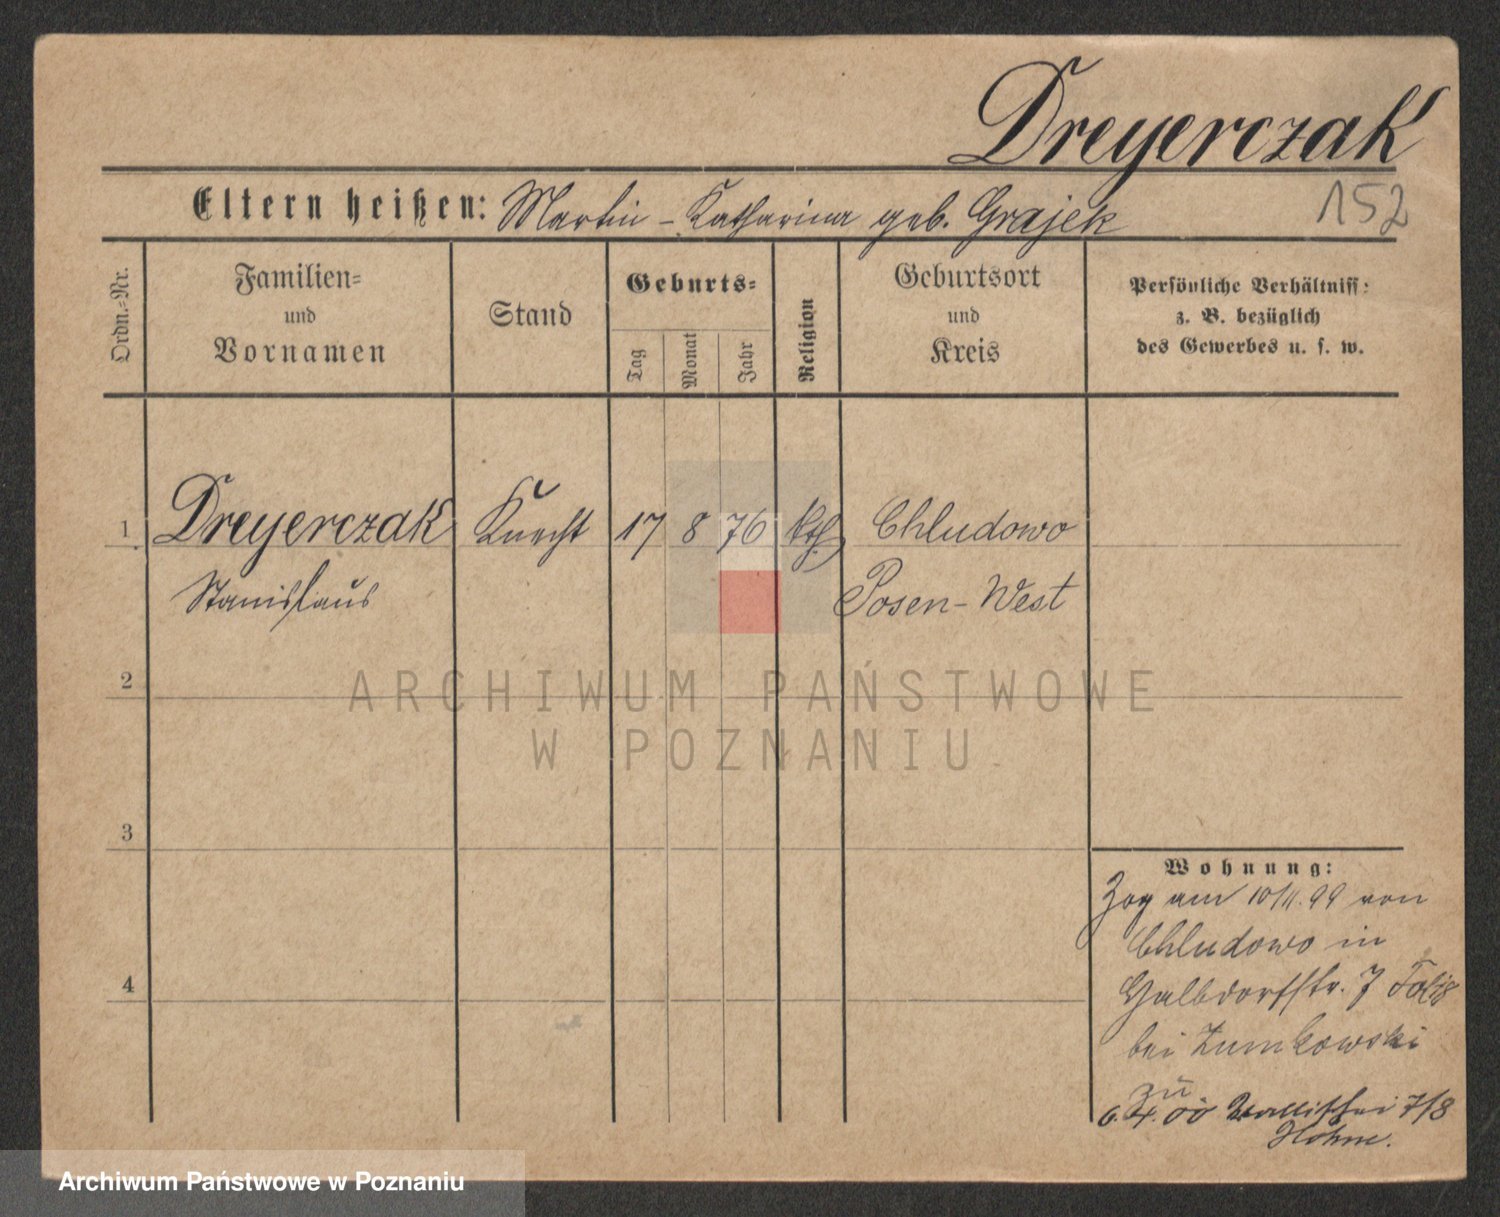 Dreyerczak
Eltern heißen: Martin - Katharina geb. Grajek
152
Ordn.-Nr.
Familien-
und
Vornamen
Stand
Geburts-
Tag
Monat
Jahr
Religion
Geburtsort
und
Kreis
Persönliche Verhältniss:
z. B. bezüglich
des Gewerbes u. s. w.
1 Dreyerczak Knecht 17 8 76 kth Chludowo
Stanislaus Posen-West
2
ARCHIWUM PAŃSTWOWE
W POZNANIU
3
4
Wohnung:
Zog am 10/11. 99 von
Chludowo in
7
bei
zu
6. 4. 00 Wallischei 7/8
Höhne.
Archiwum Państwowe w Poznaniu